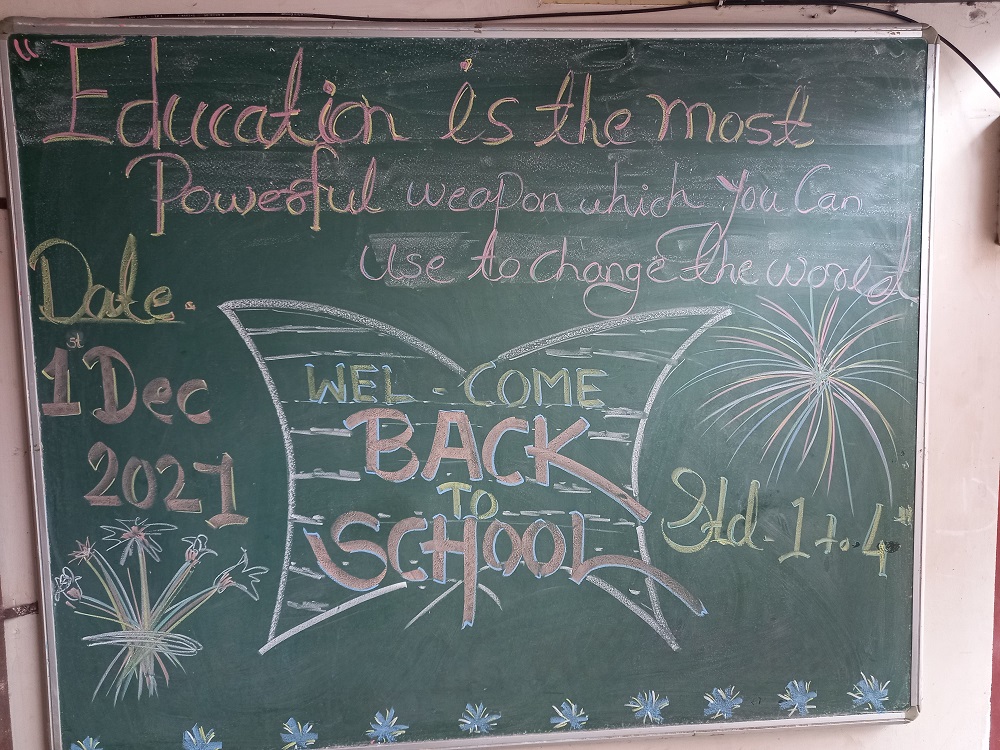 "Education is the most
Powerful weapon which You Can
Use to change The world
Date.
1st Dec
2021
WEL - COME
BACK
TO
SCHOOL
Std. 1 to 4"